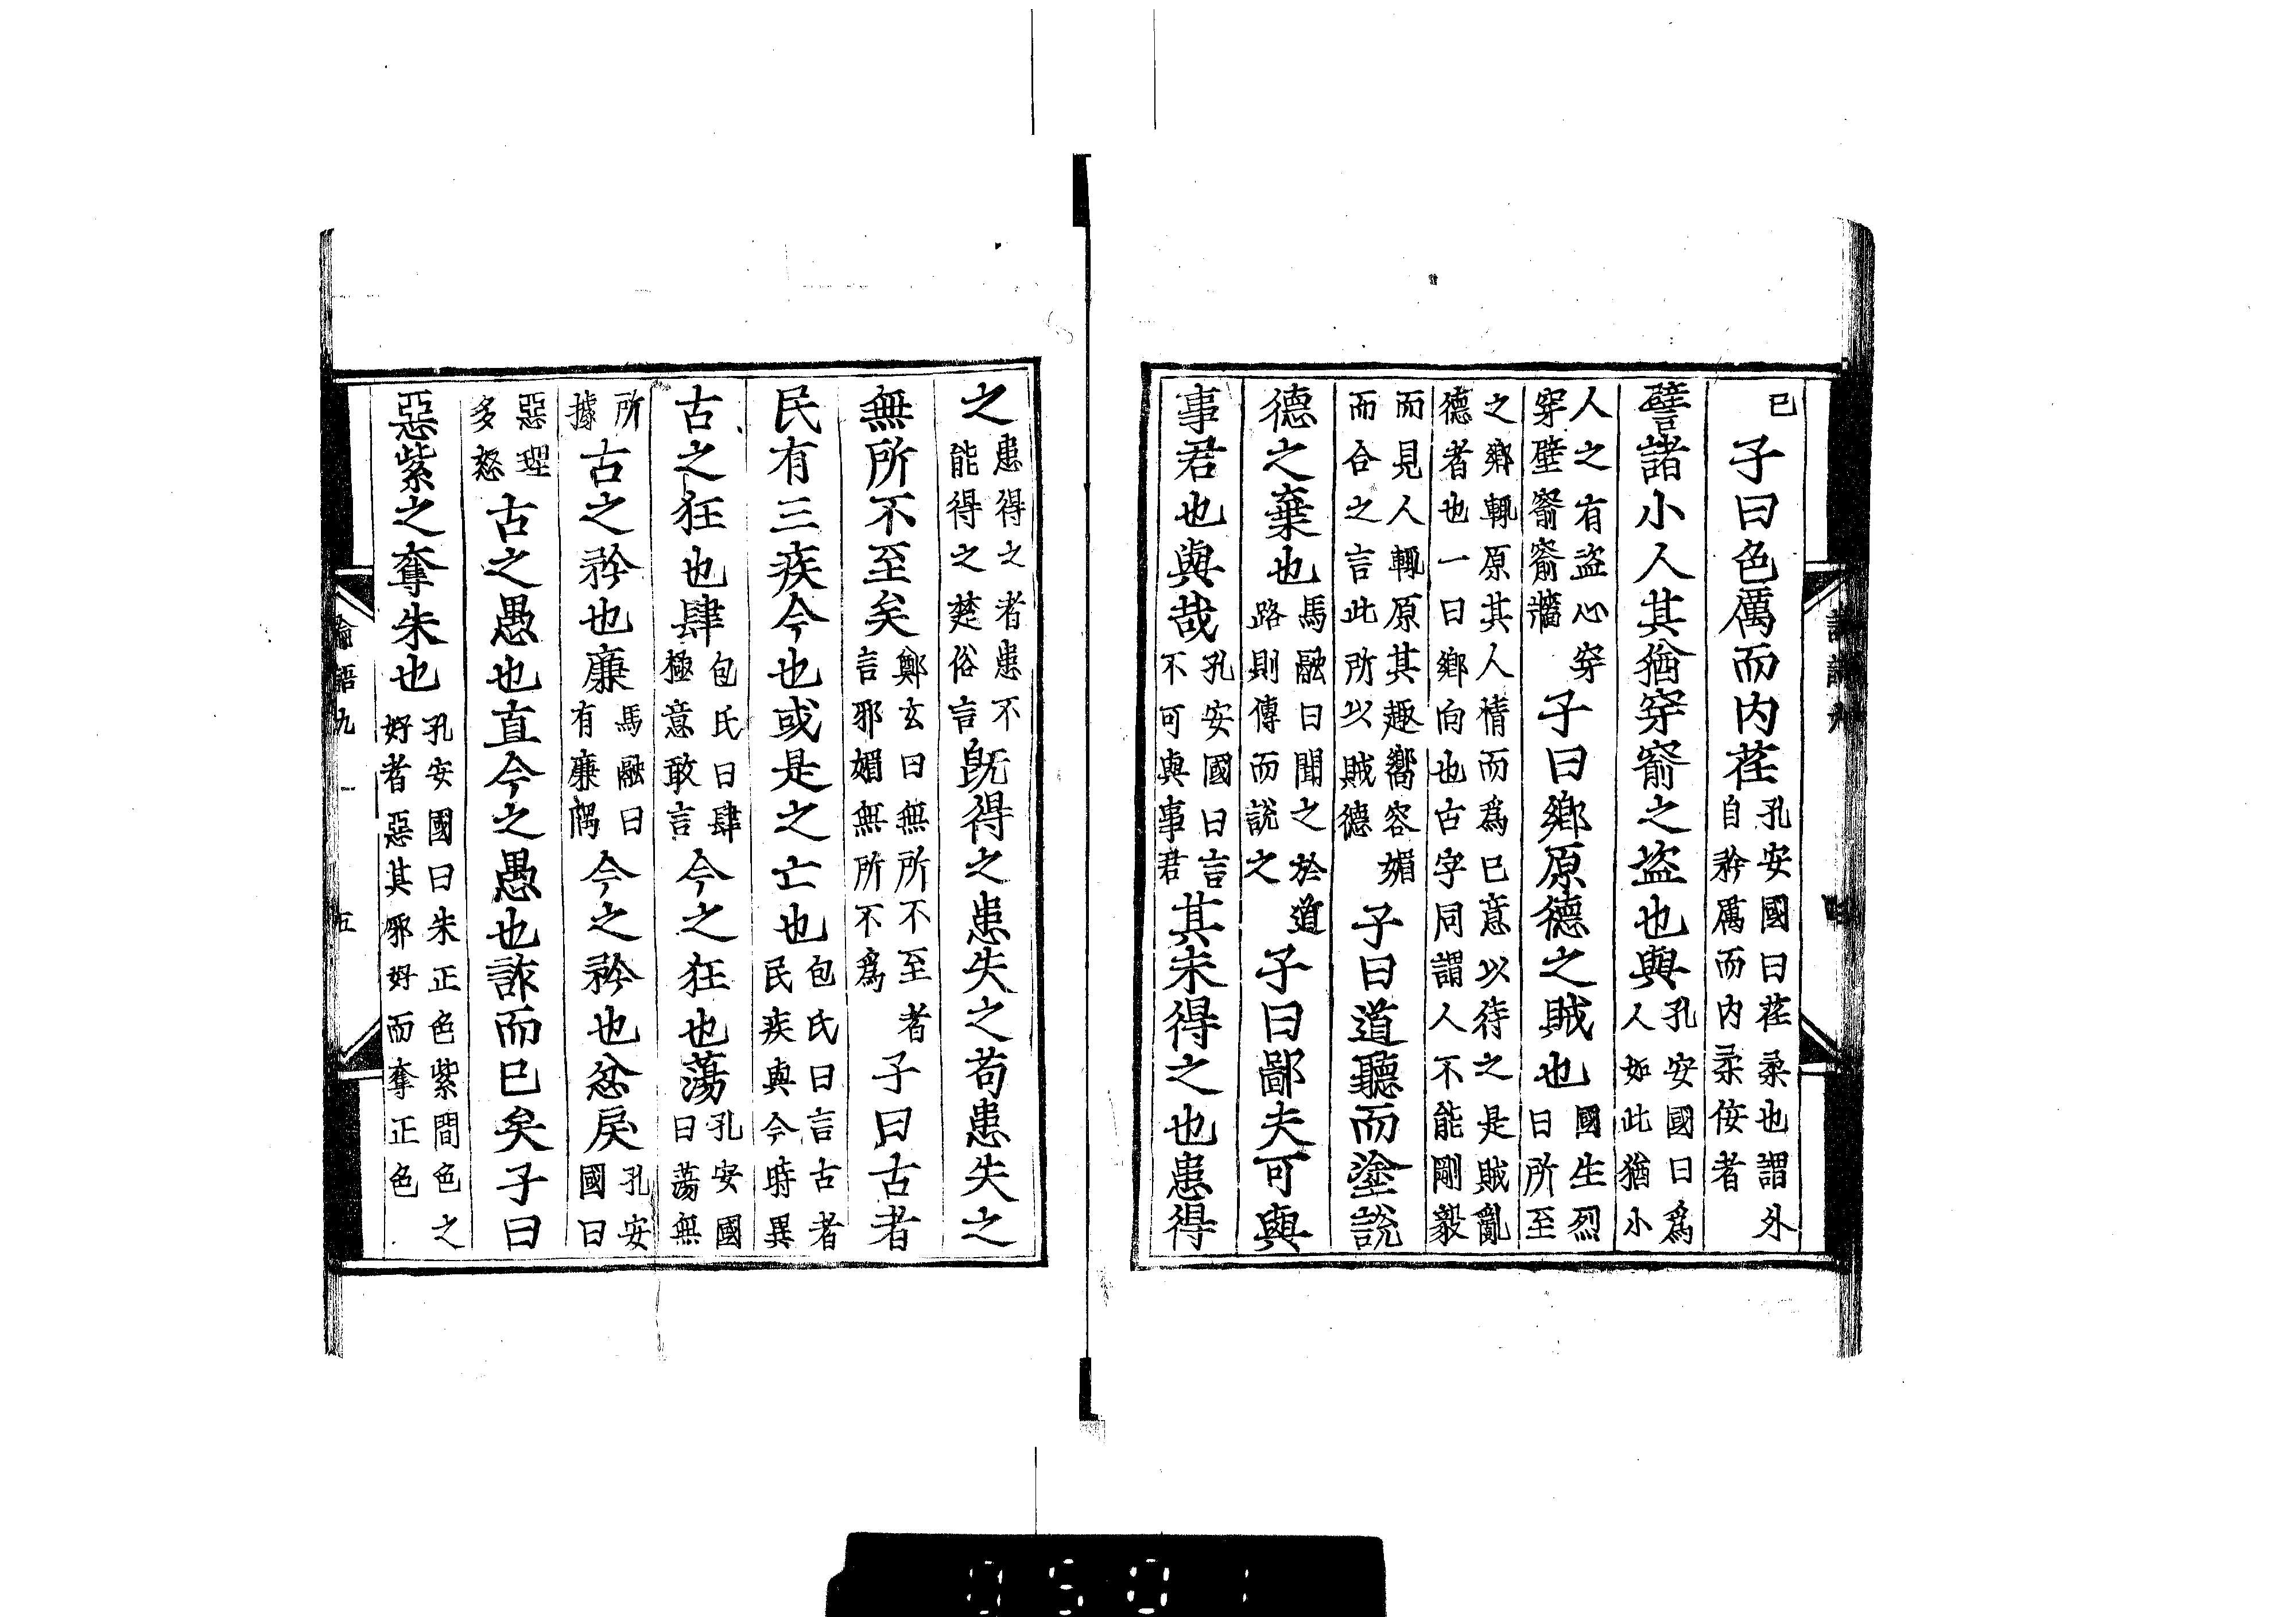 已子曰色厲而内荏孔安國曰荏柔也謂外自矜厲而内柔佞者
譬諸小人其猶穿窬之盗也與孔安國曰爲人如此猶小
人之有盗心穿穿壁窬窬牆子曰鄉原德之賊也國生烈曰所至
之鄉輒原其人情而爲已意以待之是賊亂德者也一曰鄉向也古字同謂人不能剛毅
而見人輒原其趣嚮容媚而合之言此所以賊德子曰道聽而塗說
德之棄也馬融曰聞之於道路則傳而說之子曰鄙夫可與
事君也與哉孔安國曰言不可與事君其未得之也患得
之患得之者患不能得之楚俗言既得之患失之苟患失之
無所不至矣鄭玄曰無所不至者言邪媚無所不爲子曰古者
民有三疾今也或是之亡也包氏曰言古者民疾與今時異
古之狂也肆包氏曰肆極意敢言今之狂也蕩孔安國曰蕩無
所據古之矜也廉馬融曰有廉隅今之矜也忿戾孔安國曰
惡理多怒古之愚也直今之愚也詐而已矣子曰
惡紫之奪朱也孔安國曰朱正色紫間色之好者惡其邪好而奪正色
論語九
五
0501